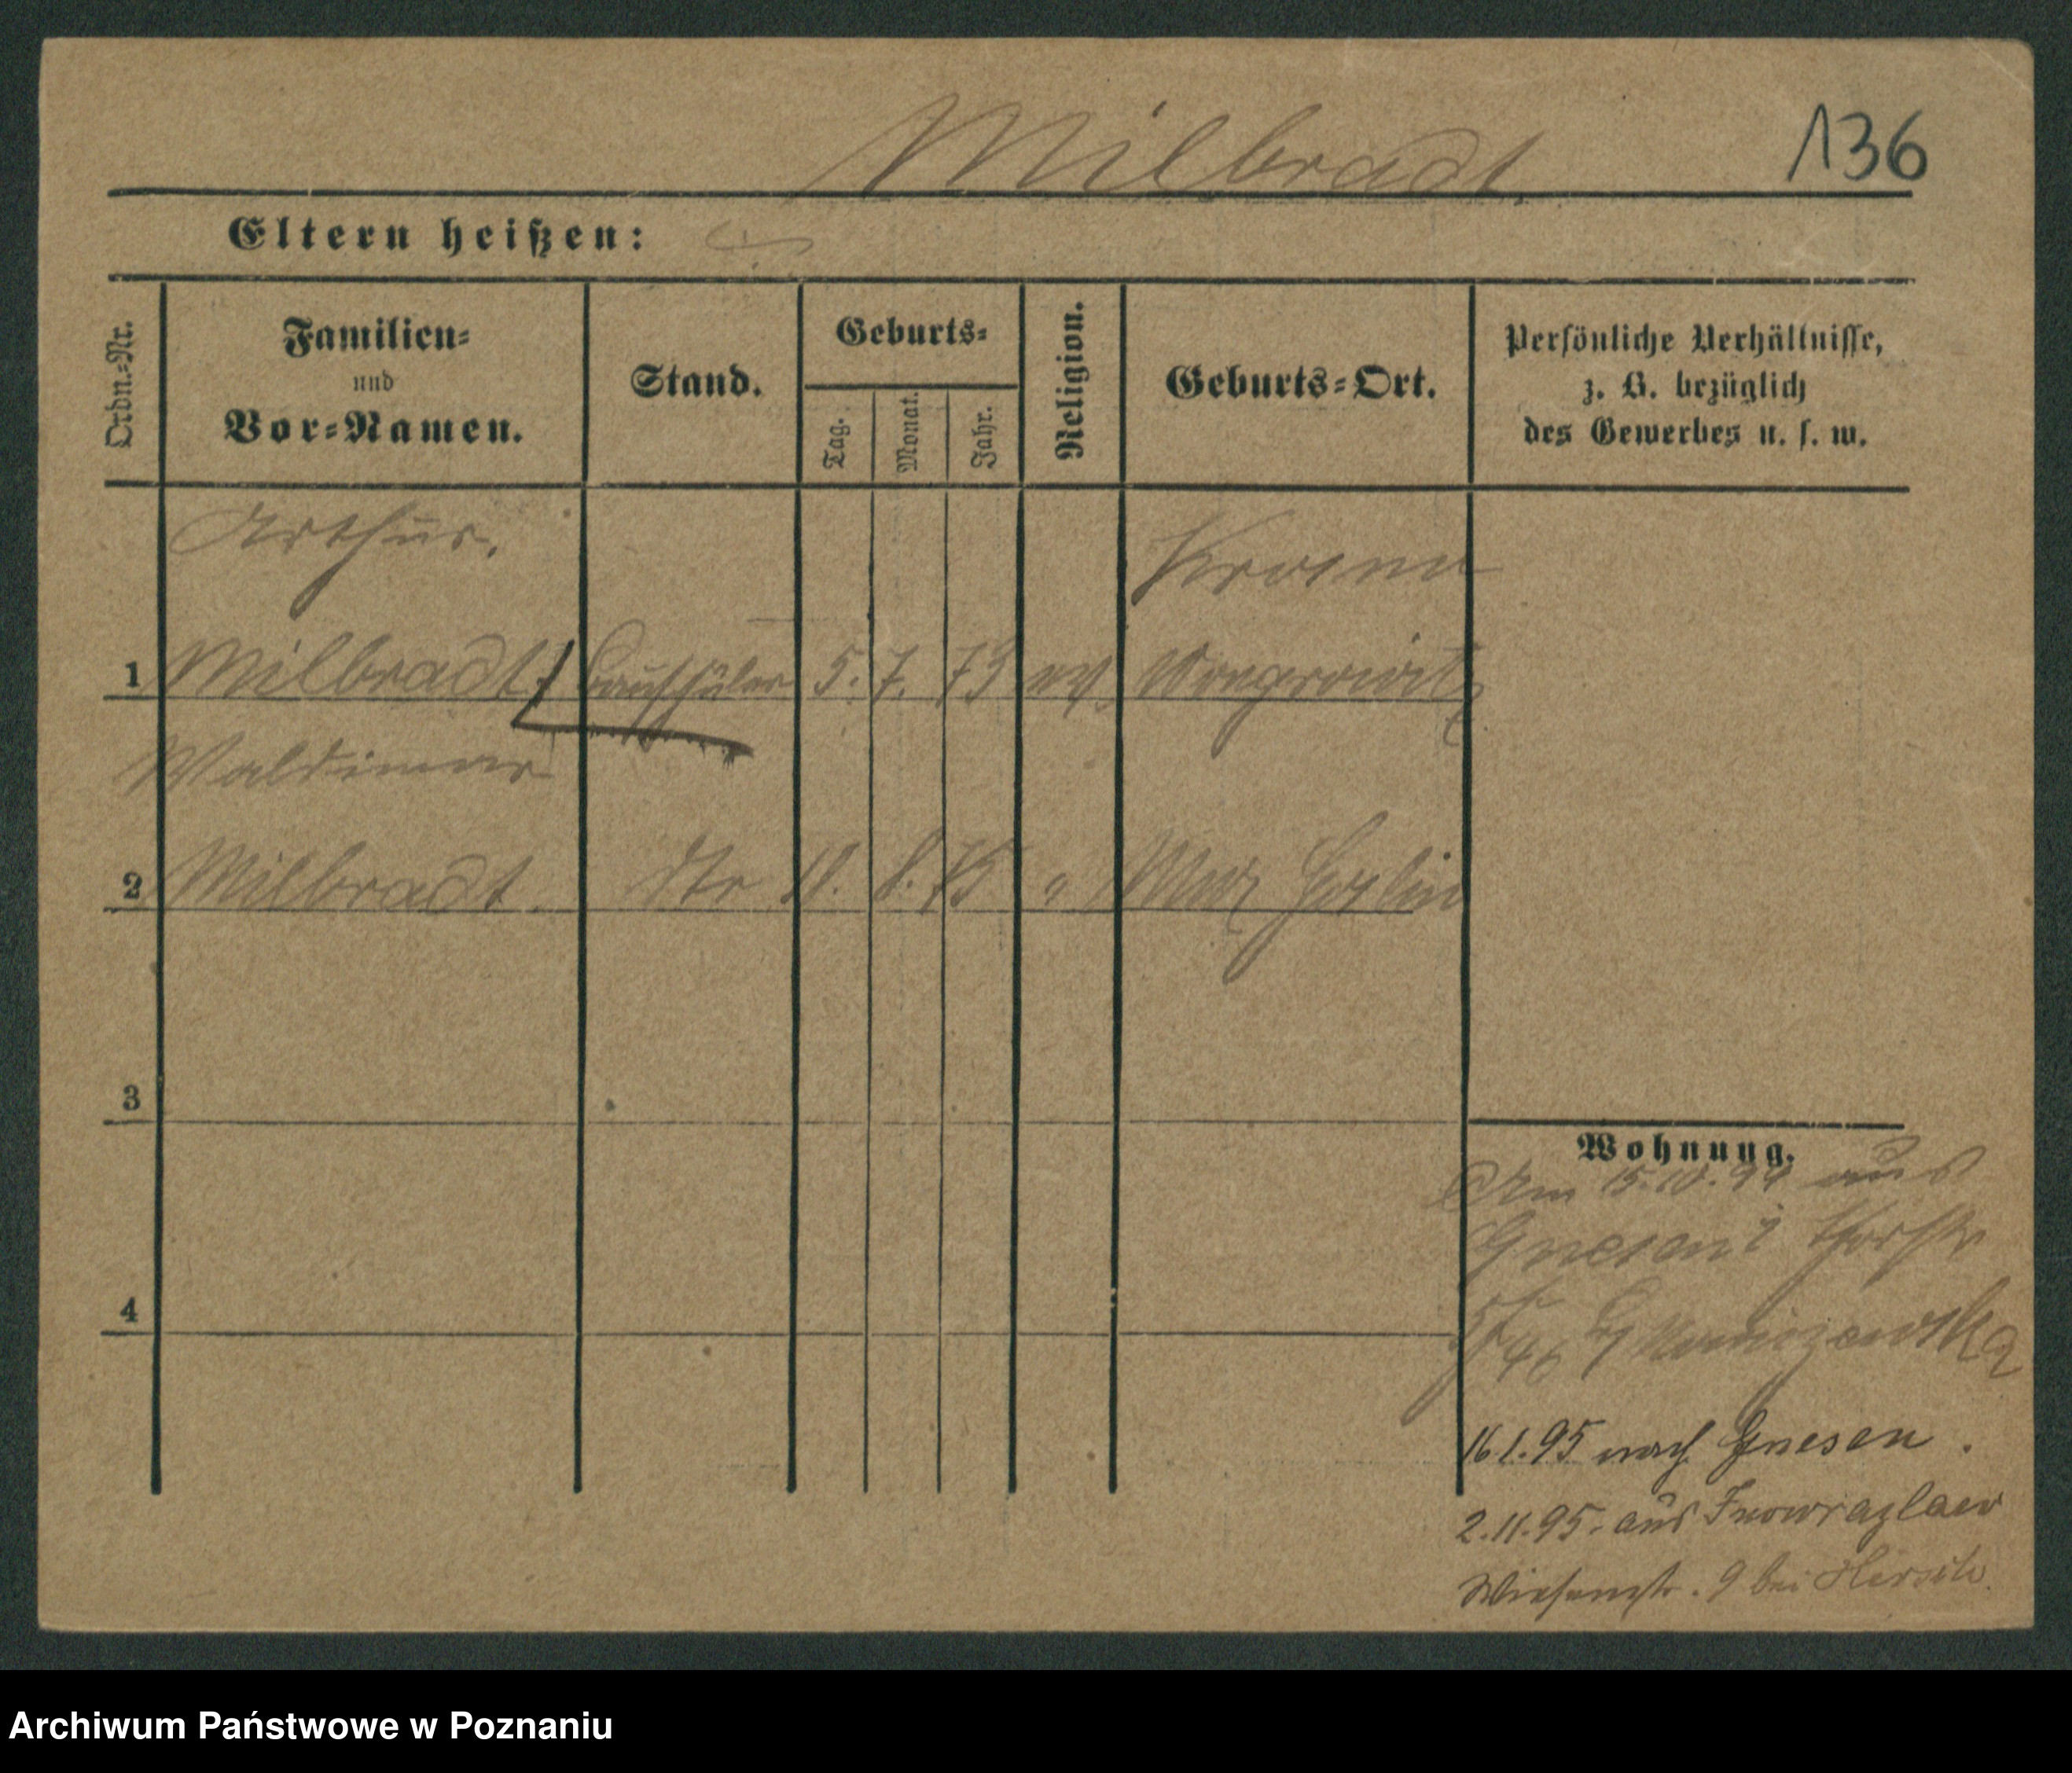 Milbradt
136
Eltern heißen:
Ordn.-Nr.
Familien-
und
Vor-Namen.
Stand.
Geburts-
Tag.
Monat.
Jahr.
Religion.
Geburts-Ort.
Persönliche Verhältnisse,
z. B. bezüglich
des Gewerbes u. s. w.
Arthur.
1 Milbradt 5. 7. 73 ev Wongrowitz
Waldimar
2 Milbradt. 8. 75 "
3
4
Wohnung.
Am 15.10.94 aus
Gnesen
16.1.95 nach Gnesen.
2.11.95. aus Inowrazlaw
Wiesenstr. 9 bei Hirsch.
Archiwum Państwowe w Poznaniu